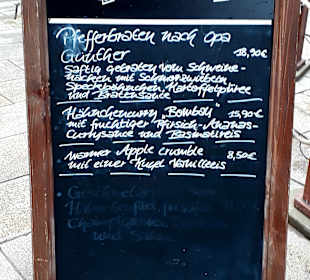 Pfefferbraten nach Opa
Günther 18,90€
saftig gebraten vom Schweine-
nacken mit Schmorzwiebeln
Speckböhnchen, Kartoffelpüree
und Bratensauce
Hähnchencurry "Bombay" 15,90€
mit fruchtiger Pfirsich-Ananas-
Currysauce und Basmatireis
warmer Apple Crumble 8,50€
mit einer Kugel Vanilleeis
und